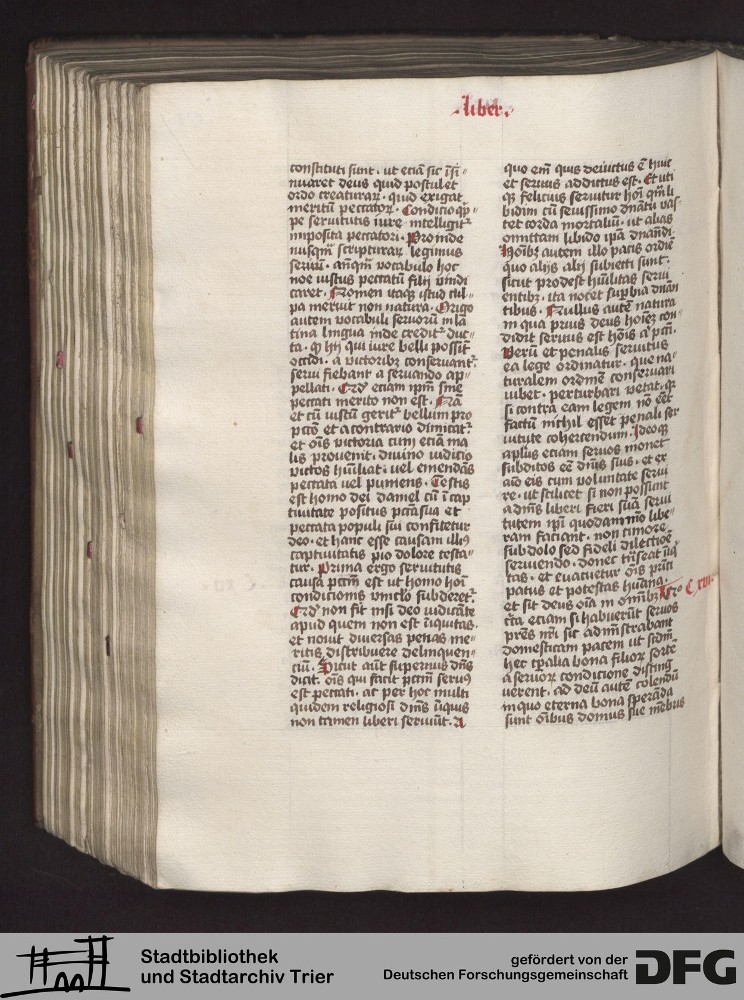 .liber.
constituti sunt. ut eciā sic īsi-
nuaret deus quid postulet
ordo creaturaꝝ. quid exigat
meritū peccatoꝝ. Condicio q̄p-
pe servitutis iure intelligit᷑
imposita peccatori. Proinde
nusqm̄ scripturaꝝ legimus
servū. anqm̄ vocabulo hoc
noe iustus peccatū filii vindi
caret. Nomen itaqȝ istud cul-
pa meruit non natura. Origo
autem vocabuli servorū in la
tina lingua inde credit᷑ duc-
ta. ꝙ hii qui iure belli possīt
occidi. a victoribȝ conservant᷑
servi fiebant a servando ap-
pellati. Qd̛ eciam ip̄m sine
peccati merito non est. Nā
et cū iustū gerit᷑ bellum pro
pctō et a contrario dimicat᷑
et oīs victoria cum eciā ma
lis provenit. divino iudicio
victos hūiliat. vel emendās
peccata vel puniens. Testis
est homo dei daniel cū ī cap
tivitate positus pctāsua et
peccata populi sui confitetur
deo. et hanc esse causam illiꝰ
captivitatis pio dolore testa-
tur. Prima ergo servitutis
causa pctm̄ est ut homo hoī
condicionis vinclo subderet᷑.
Qd̛ non fit nisi deo iudicāte
apud quem non est īiquitas.
et novit diversas penas me-
ritis distribuere delinquen-
ciū. Sicut aūt supernus dn̄s
dicit. oīs qui facit pctm̄ servꝰ
est peccati. ac per hoc multi
quidem religiosi dn̄is īiquis
non tamen liberi serviūt. A
quo em̄ quis devictus ē huic
et servus addictus est. Et uti
qȝ felicius servitur hoī qm̄ li
bidim cū sevissimo dn̄atu vas
tet corda mortaliū. ut alias
omittam libido ip̄a dnandi.
Hoībȝ autem illo pacis ordīe
quo aliis alii subiecti sunt.
sicut prodest hūilitas servi
entibȝ. ita nocet supbia dnan
tibus. Nullus autē natura
in qua prius deus hoīeȝ con-
didit servus est hoīs aut pctī.
Verū et penalis servitus
ea lege ordinatur. que na-
turalem ordinē conservari
iubet. perturbari vetat. qȝ
si contra eam legem nō eēt
factū nichil esset penali ser
vitute cohercendum. Ideoqȝ
aplus eciam servos monet
subditos eē dn̄is suis. et ex
aīo eis cum voluntate servi
re. ut scilicet si non possunt
a dn̄is liberi fieri suā servi
tutem ip̄i quodammō libe-
ram faciant. non timore
subdolo sed fideli dilectiōe
serviendo. donec trāseat īiq̄
tas. et evacuetur oīs pn̄ci
patus et potestas hūana.
et sit deus oīa in oīnibȝ. Qro C xvi.
circa eciam si habuerūt servos
pr̄es nr̄i sic admīstrabant
domesticam pacem ut sc̄dm̄
hec tp̄alia bona filioꝝ sortē
a servoꝝ condicione disting
uerent. ad deū autē colendū
in quo eterna bona speranda
sunt oībus domus sue mēbris
Stadtbibliothek
und Stadtarchiv Trier
gefördert von der
Deutschen Forschungsgemeinschaft
DFG